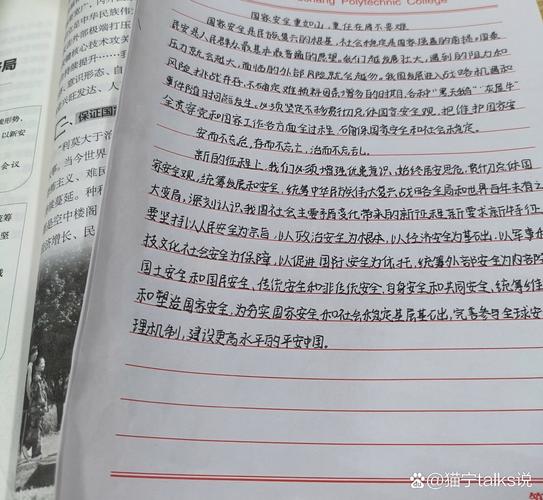 shang Polytechnic College
国家安全重如山,重任在肩不畏难
国家安全是民族复兴的根基,社会稳定是国家强盛的前提,国泰
民安是人民群众最基本最普通的愿望。我们越发展壮大,遇到的阻力和
压力就会越大,面临的外部风险就会越多。我国发展进入战略机遇和
风险挑战并存、不确定难预料因素增多的时期,各种“黑天鹅”“灰犀牛”
事件随时可能发生。必须坚定不移贯彻总体国家安全观,把维护国家安
全贯穿党和国家工作各方面全过程,确保国家安全和社会稳定。
安而不忘危,存而不忘亡,治而不忘乱。
新的征程上,我们必须增强忧患意识、始终居安思危,贯彻总体国
家安全观,统筹发展和安全,统筹中华民族伟大复兴战略全局和世界百年未有之
大变局,深刻认识我国社会主要矛盾变化带来的新征程新要求新特征,
要坚持以人民安全为宗旨,以政治安全为根本,以经济安全为基础,以军事科
技文化社会安全为保障,以促进国际安全为依托,统筹外部安全为内部
国土安全和国民安全,传统安全和非传统安全,自身安全和共同安全,统筹维
和塑造国家安全,为夯实国家安全和社会稳定基层基础,完善参与全球安
理机制,建设更高水平的平安中国。
局
会议
二、保证国
“利莫大于治
当今世界
义、难民
蔓延。种种
是空中楼阁
济增长、民
@猫宁talks说